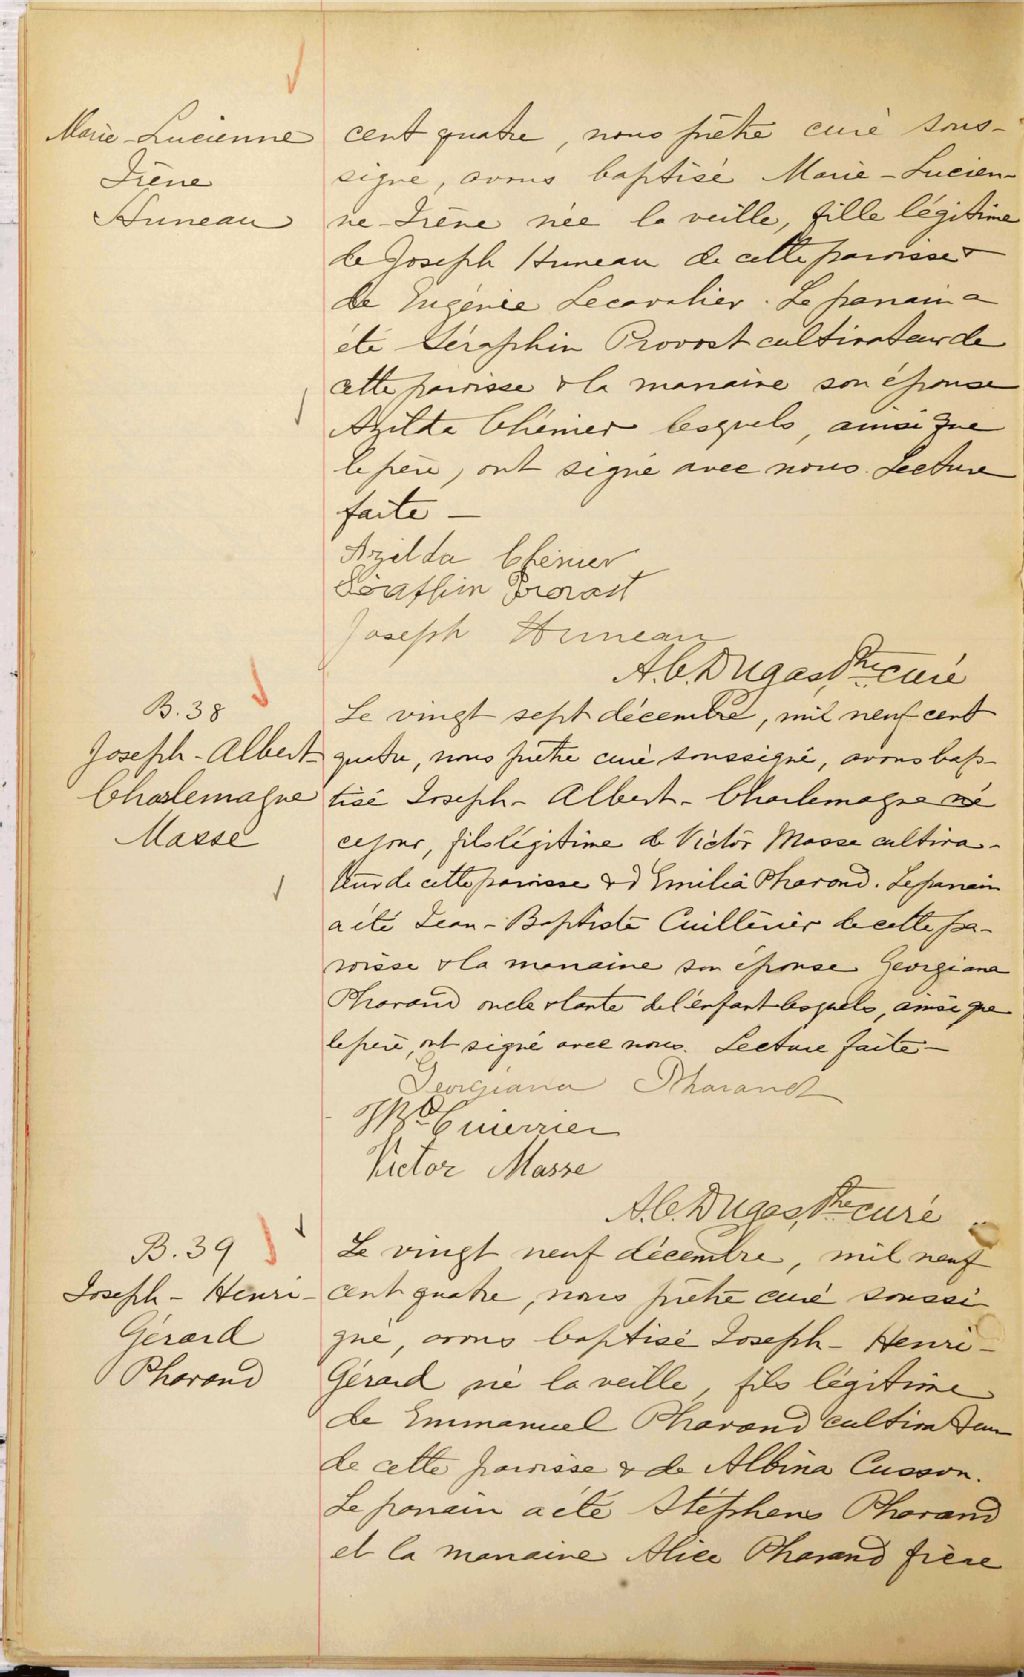 Marie-Lucienne
Irène
Huneau
cent quatre, nous prêtre curé sous-
signé, avons baptisé Marie-Lucien-
ne-Irène née la veille, fille légitime
de Joseph Huneau de cette paroisse &
de Eugénie Lecavalier. Le parrain a
été Séraphin Provost cultivateur de
cette paroisse & la marraine son épouse
Azilda Chénier lesquels, ainsi que
le père, ont signé avec nous. Lecture
faite —
Azilda Chénier
Séraffin Provost
Joseph Huneau
A.C. Dugas, Ptre curé
B. 38
Joseph-Albert-
Charlemagne
Masse
Le vingt sept décembre, mil neuf cent
quatre, nous prêtre curé soussigné, avons bap-
tisé Joseph-Albert-Charlemagne né
ce jour, fils légitime de Victor Masse cultiva-
teur de cette paroisse & d'Emilia Pharand. Le parrain
a été Jean-Baptiste Cuillèrier de cette pa-
roisse & la marraine son épouse Georgiana
Pharand oncle & tante de l'enfant lesquels, ainsi que
le père, ont signé avec nous. Lecture faite —
Georgiana Pharand
Cuierrier
Victor Masse
A.C. Dugas, Ptre curé
B. 39
Joseph-Henri-
Gérard
Pharand
Le vingt neuf décembre, mil neuf
cent quatre, nous prêtre curé soussi
gné, avons baptisé Joseph-Henri-
Gérard né la veille, fils légitime
de Emmanuel Pharand cultivateur
de cette paroisse & de Albina Cusson.
Le parrain a été Stéphens Pharand
et la marraine Alice Pharand frère